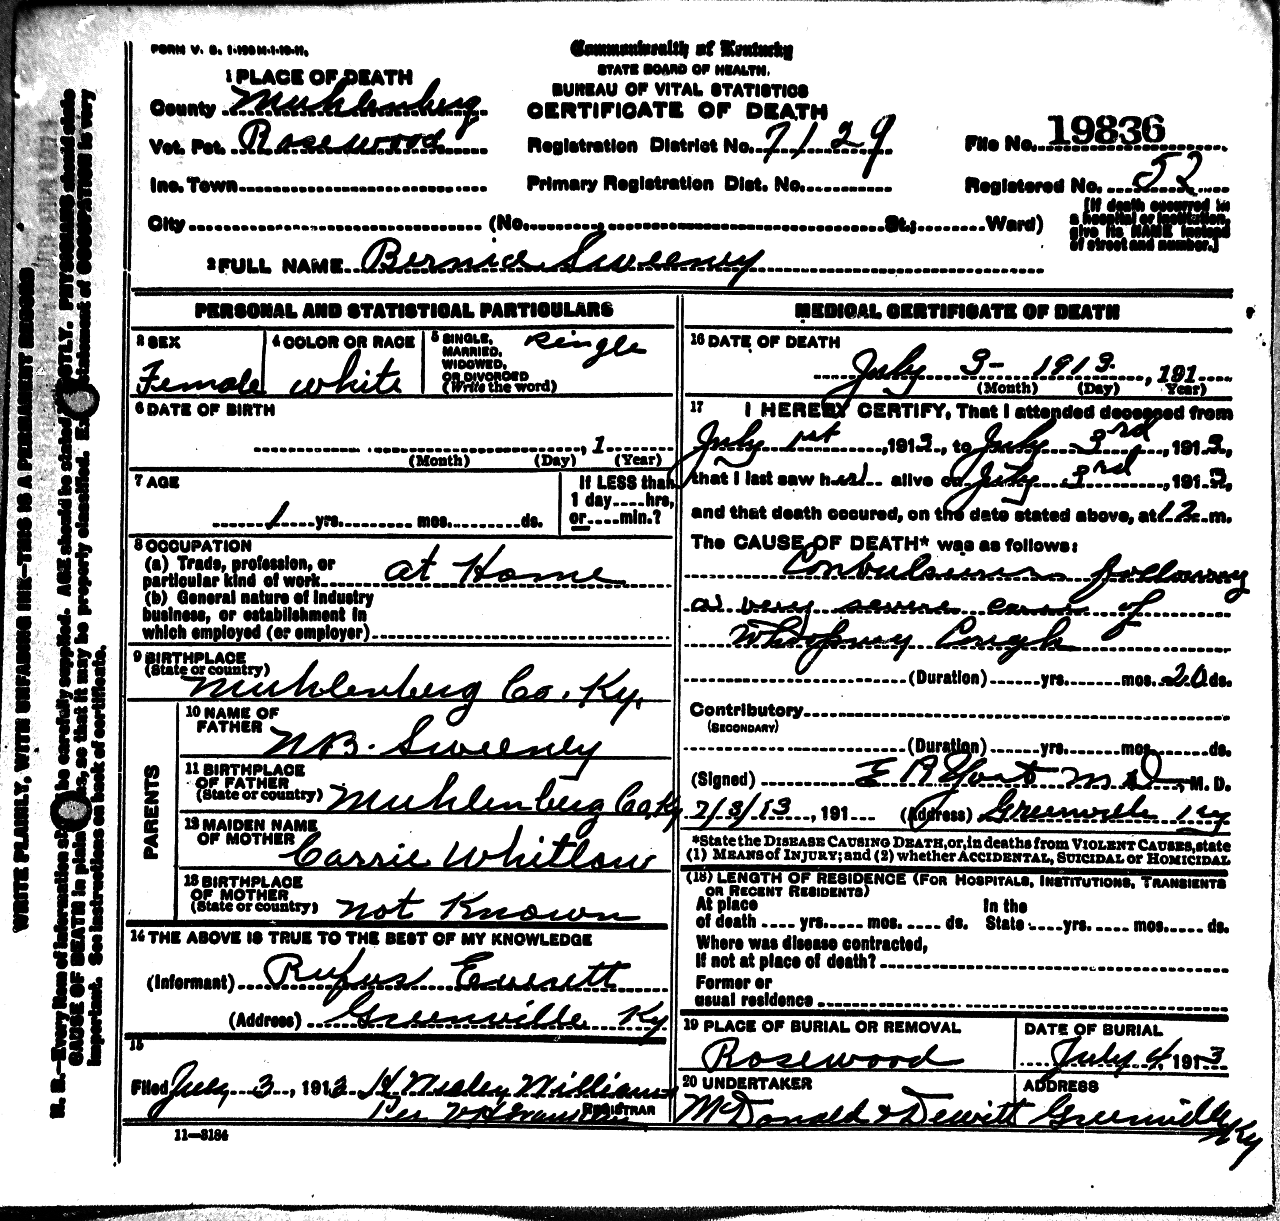 FORM V. S. 1-150M-1-19-11.
Commonwealth of Kentucky
STATE BOARD OF HEALTH.
BUREAU OF VITAL STATISTICS
CERTIFICATE OF DEATH
1 PLACE OF DEATH
County Muhlenberg
Vot. Pct. Rosewood
Registration District No. 7129
File No. 19836
Inc. Town
Primary Registration Dist. No.
Registered No. 52
City (No. St.; Ward)
[If death occurred in
a hospital or institution,
give its NAME instead
of street and number.]
2 FULL NAME Bernice Sweeney
PERSONAL AND STATISTICAL PARTICULARS
3 SEX
Female
4 COLOR OR RACE
white
5 SINGLE,
MARRIED,
WIDOWED,
OR DIVORCED
(Write the word)
Single
6 DATE OF BIRTH
, 1
(Month) (Day) (Year)
7 AGE
1 yrs. mos. ds.
If LESS than
1 day hrs,
or min.?
8 OCCUPATION
(a) Trade, profession, or
particular kind of work at Home
(b) General nature of industry
business, or establishment in
which employed (or employer)
9 BIRTHPLACE
(State or country)
Muhlenberg Co. Ky.
PARENTS
10 NAME OF
FATHER
N B. Sweeney
11 BIRTHPLACE
OF FATHER
(State or country) Muhlenberg Co Ky
12 MAIDEN NAME
OF MOTHER
Carrie Whitlow
13 BIRTHPLACE
OF MOTHER
(State or country) not Known
14 THE ABOVE IS TRUE TO THE BEST OF MY KNOWLEDGE
(Informant) Rufus Everett
(Address) Greenville Ky
15
Filed July 3, 1913 Wesley Williams
Per
REGISTRAR
11—3184
MEDICAL CERTIFICATE OF DEATH
16 DATE OF DEATH
July 3- 1913. , 191
(Month) (Day) Year)
17 I HEREBY CERTIFY, That I attended deceased from
July 1st, 1913, to July 3rd, 1913,
that I last saw her alive on July 3rd, 1913,
and that death occured, on the date stated above, at 12 m.
The CAUSE OF DEATH* was as follows:
Convulsions following
a very severe case of
Whooping Cough
(Duration) yrs. mos. 20 ds.
Contributory
(SECONDARY)
(Duration) yrs. mos. ds.
(Signed) Yost M D, M. D.
7/3/13, 191 (Address) Greenville Ky
*State the DISEASE CAUSING DEATH, or, in deaths from VIOLENT CAUSES, state
(1) MEANS OF INJURY; and (2) whether ACCIDENTAL, SUICIDAL or HOMICIDAL
(18) LENGTH OF RESIDENCE (FOR HOSPITALS, INSTITUTIONS, TRANSIENTS
OR RECENT RESIDENTS)
At place In the
of death yrs. mos. ds. State yrs. mos. ds.
Where was disease contracted,
If not at place of death?
Former or
usual residence
19 PLACE OF BURIAL OR REMOVAL
Rosewood
DATE OF BURIAL
July 4, 1913
20 UNDERTAKER
McDonald & Dewitt
ADDRESS
Greenville
Ky
WRITE PLAINLY, WITH UNFADING INK—THIS IS A PERMANENT RECORD
N. B.—Every item of information should be carefully supplied. AGE should be stated EXACTLY. PHYSICIANS should state
CAUSE OF DEATH in plain terms, so that it may be properly classified. Exact statement of OCCUPATION is very
important. See instructions on back of certificate.